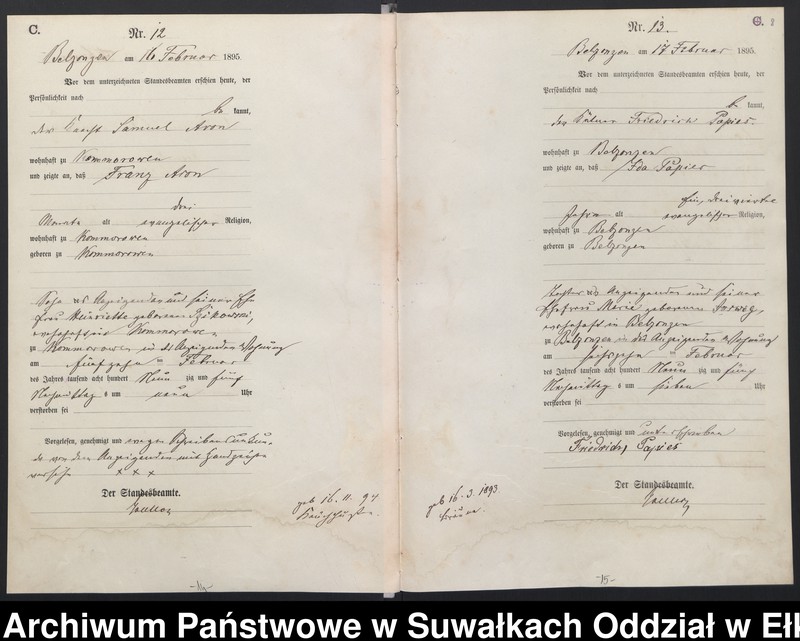 C.
Nr. 12
Belzonzen am 16 Februar 1895.
Vor dem unterzeichneten Standesbeamten erschien heute, der
Persönlichkeit nach
be kannt,
der Knecht Samuel Aron
wohnhaft zu Kommorowen
und zeigte an, daß Franz Aron
drei
Monate alt evangelischer Religion,
wohnhaft zu Kommorowen
geboren zu Kommorowen
Sohn des Anzeigenden und seiner Ehe
frau Henriette geborenen
wohnhaft in Kommorowen
zu Kommorowen in des Anzeigenden Wohnung
am fünfzehn ten Februar
des Jahres tausend acht hundert Neun zig und fünf
Nachmittag s um neun Uhr
verstorben sei
Vorgelesen, genehmigt und wegen Schreibensunkun-
de von dem Anzeigenden mit Handzeichen
versehen x x x
Der Standesbeamte.
geb 16. 11. 94
-14-
C.
Nr. 13.
Belzonzen am 17 Februar 1895.
Vor dem unterzeichneten Standesbeamten erschien heute, der
Persönlichkeit nach
be kannt,
der Friedrich Papies.
wohnhaft zu Belzonzen
und zeigte an, daß Ida Papies
ein, dreiviertel
Jahre alt evangelischer Religion,
wohnhaft zu Belzonzen
geboren zu Belzonzen
Tochter des Anzeigenden und seiner
Ehefrau Marie geborenen
wohnhaft in Belzonzen
zu Belzonzen in des Anzeigenden Wohnung
am sechszehn ten Februar
des Jahres tausend acht hundert Neun zig und fünf
Nachmittag s um sieben Uhr
verstorben sei
Vorgelesen, genehmigt und unterschrieben
Friedrich Papies
Der Standesbeamte.
geb 16. 3. 1893
-15-
Archiwum Państwowe w Suwałkach Oddział w Eł